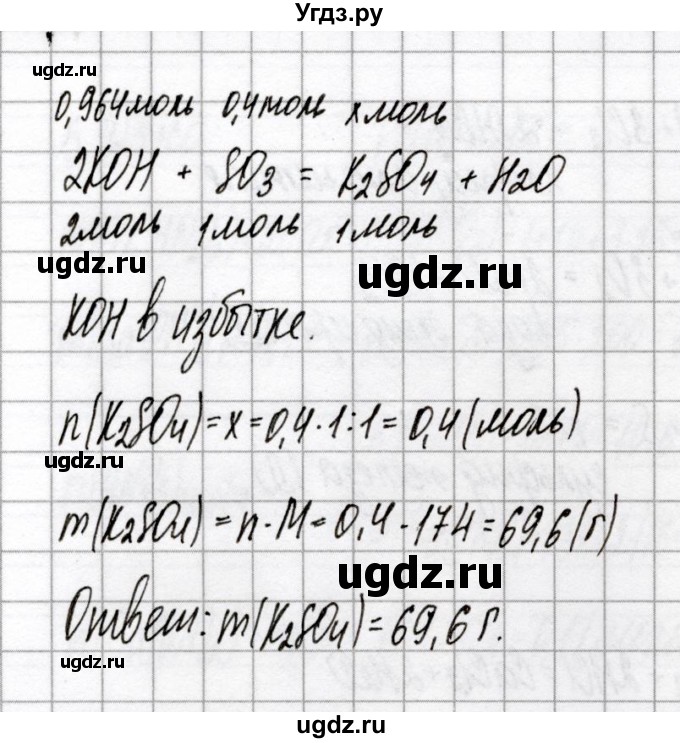 Угдз.ру
ugdz.ru
0,964моль 0,4моль xмоль
2KOH + SO3 = K2SO4 + H2O
2моль 1моль 1моль
ugdz.ru
ugdz.ru
KOH в избытке.
n(K2SO4)=x=0,4·1:1=0,4(моль)
ugdz.ru
m(K2SO4)=n·M=0,4·174=69,6(г)
ugdz.ru
Ответ: m(K2SO4)=69,6г.
ugdz.ru
ugdz.ru